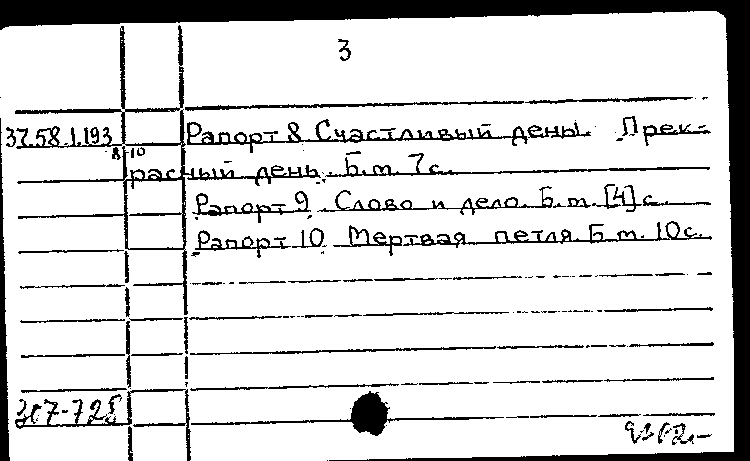 3
37.58.1.193 Рапорт 8 Счастливый день!. Прек-
8-10 расный день. Б.т. 7с.
Рапорт 9. Слово и дело. Б.т. [4]с.
Рапорт 10 Мертвая петля. Б.т. 10с.
307-728